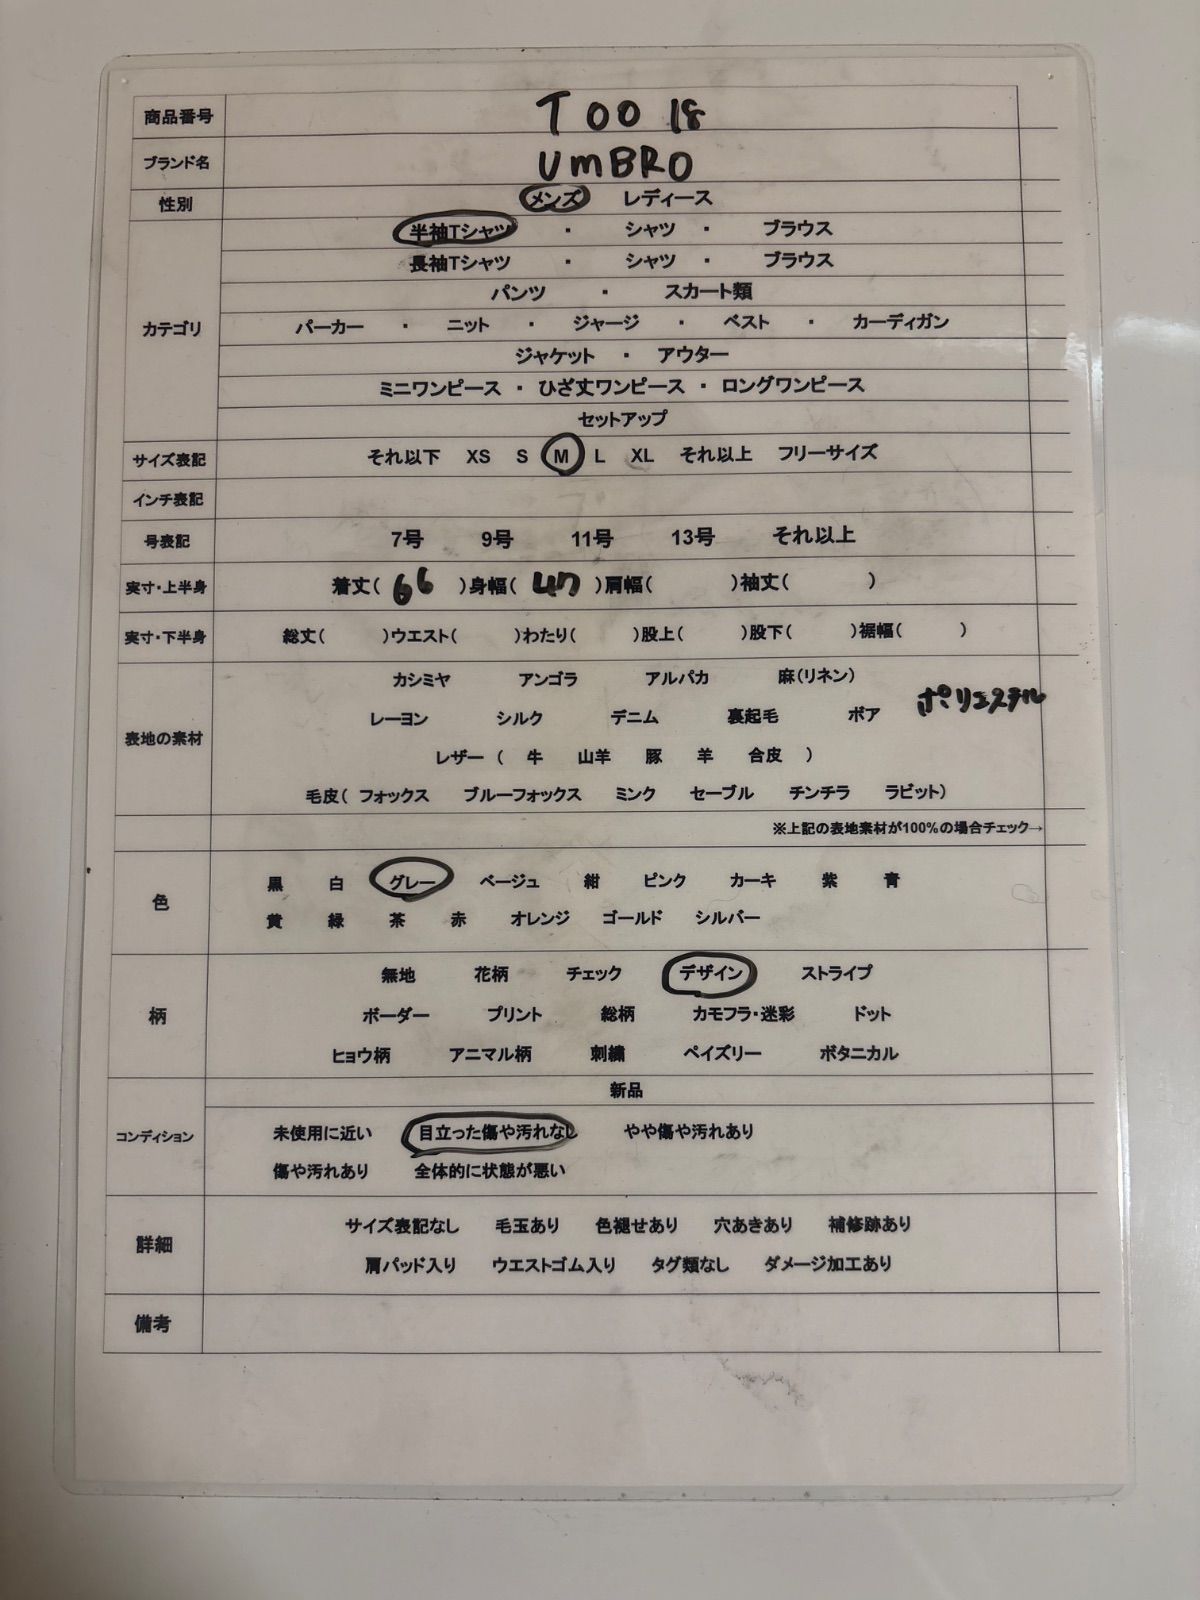 商品番号 T0018
ブランド名 UMBRO
性別 メンズ レディース
カテゴリ
半袖Tシャツ ・ シャツ ・ ブラウス
長袖Tシャツ ・ シャツ ・ ブラウス
パンツ ・ スカート類
パーカー ・ ニット ・ ジャージ ・ ベスト ・ カーディガン
ジャケット ・ アウター
ミニワンピース ・ ひざ丈ワンピース ・ ロングワンピース
セットアップ
サイズ表記 それ以下 XS S M L XL それ以上 フリーサイズ
インチ表記
号表記 7号 9号 11号 13号 それ以上
実寸・上半身 着丈( 66 )身幅( 47 )肩幅( )袖丈( )
実寸・下半身 総丈( )ウエスト( )わたり( )股上( )股下( )裾幅( )
表地の素材
カシミヤ アンゴラ アルパカ 麻(リネン)
ポリエステル
レーヨン シルク デニム 裏起毛 ボア
レザー ( 牛 山羊 豚 羊 合皮 )
毛皮( フォックス ブルーフォックス ミンク セーブル チンチラ ラビット)
※上記の表地素材が100%の場合チェック→
色
黒 白 グレー ベージュ 紺 ピンク カーキ 紫 青
黄 緑 茶 赤 オレンジ ゴールド シルバー
柄
無地 花柄 チェック デザイン ストライプ
ボーダー プリント 総柄 カモフラ・迷彩 ドット
ヒョウ柄 アニマル柄 刺繍 ペイズリー ボタニカル
コンディション
新品
未使用に近い 目立った傷や汚れなし やや傷や汚れあり
傷や汚れあり 全体的に状態が悪い
詳細
サイズ表記なし 毛玉あり 色褪せあり 穴あきあり 補修跡あり
肩パッド入り ウエストゴム入り タグ類なし ダメージ加工あり
備考